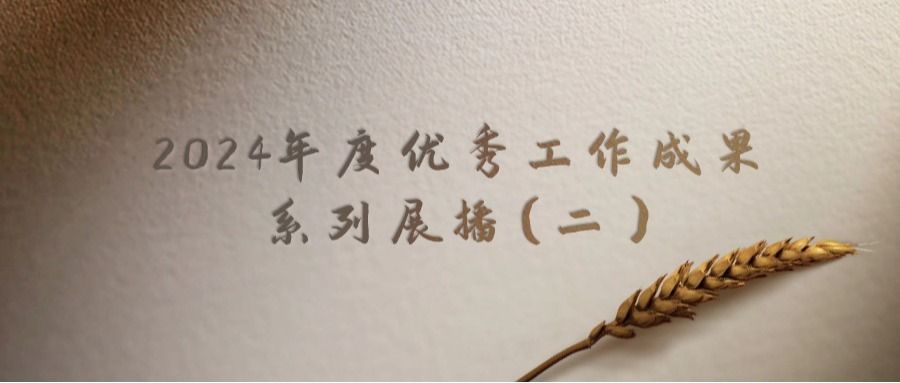 2024年度优秀工作成果
系列展播(二)